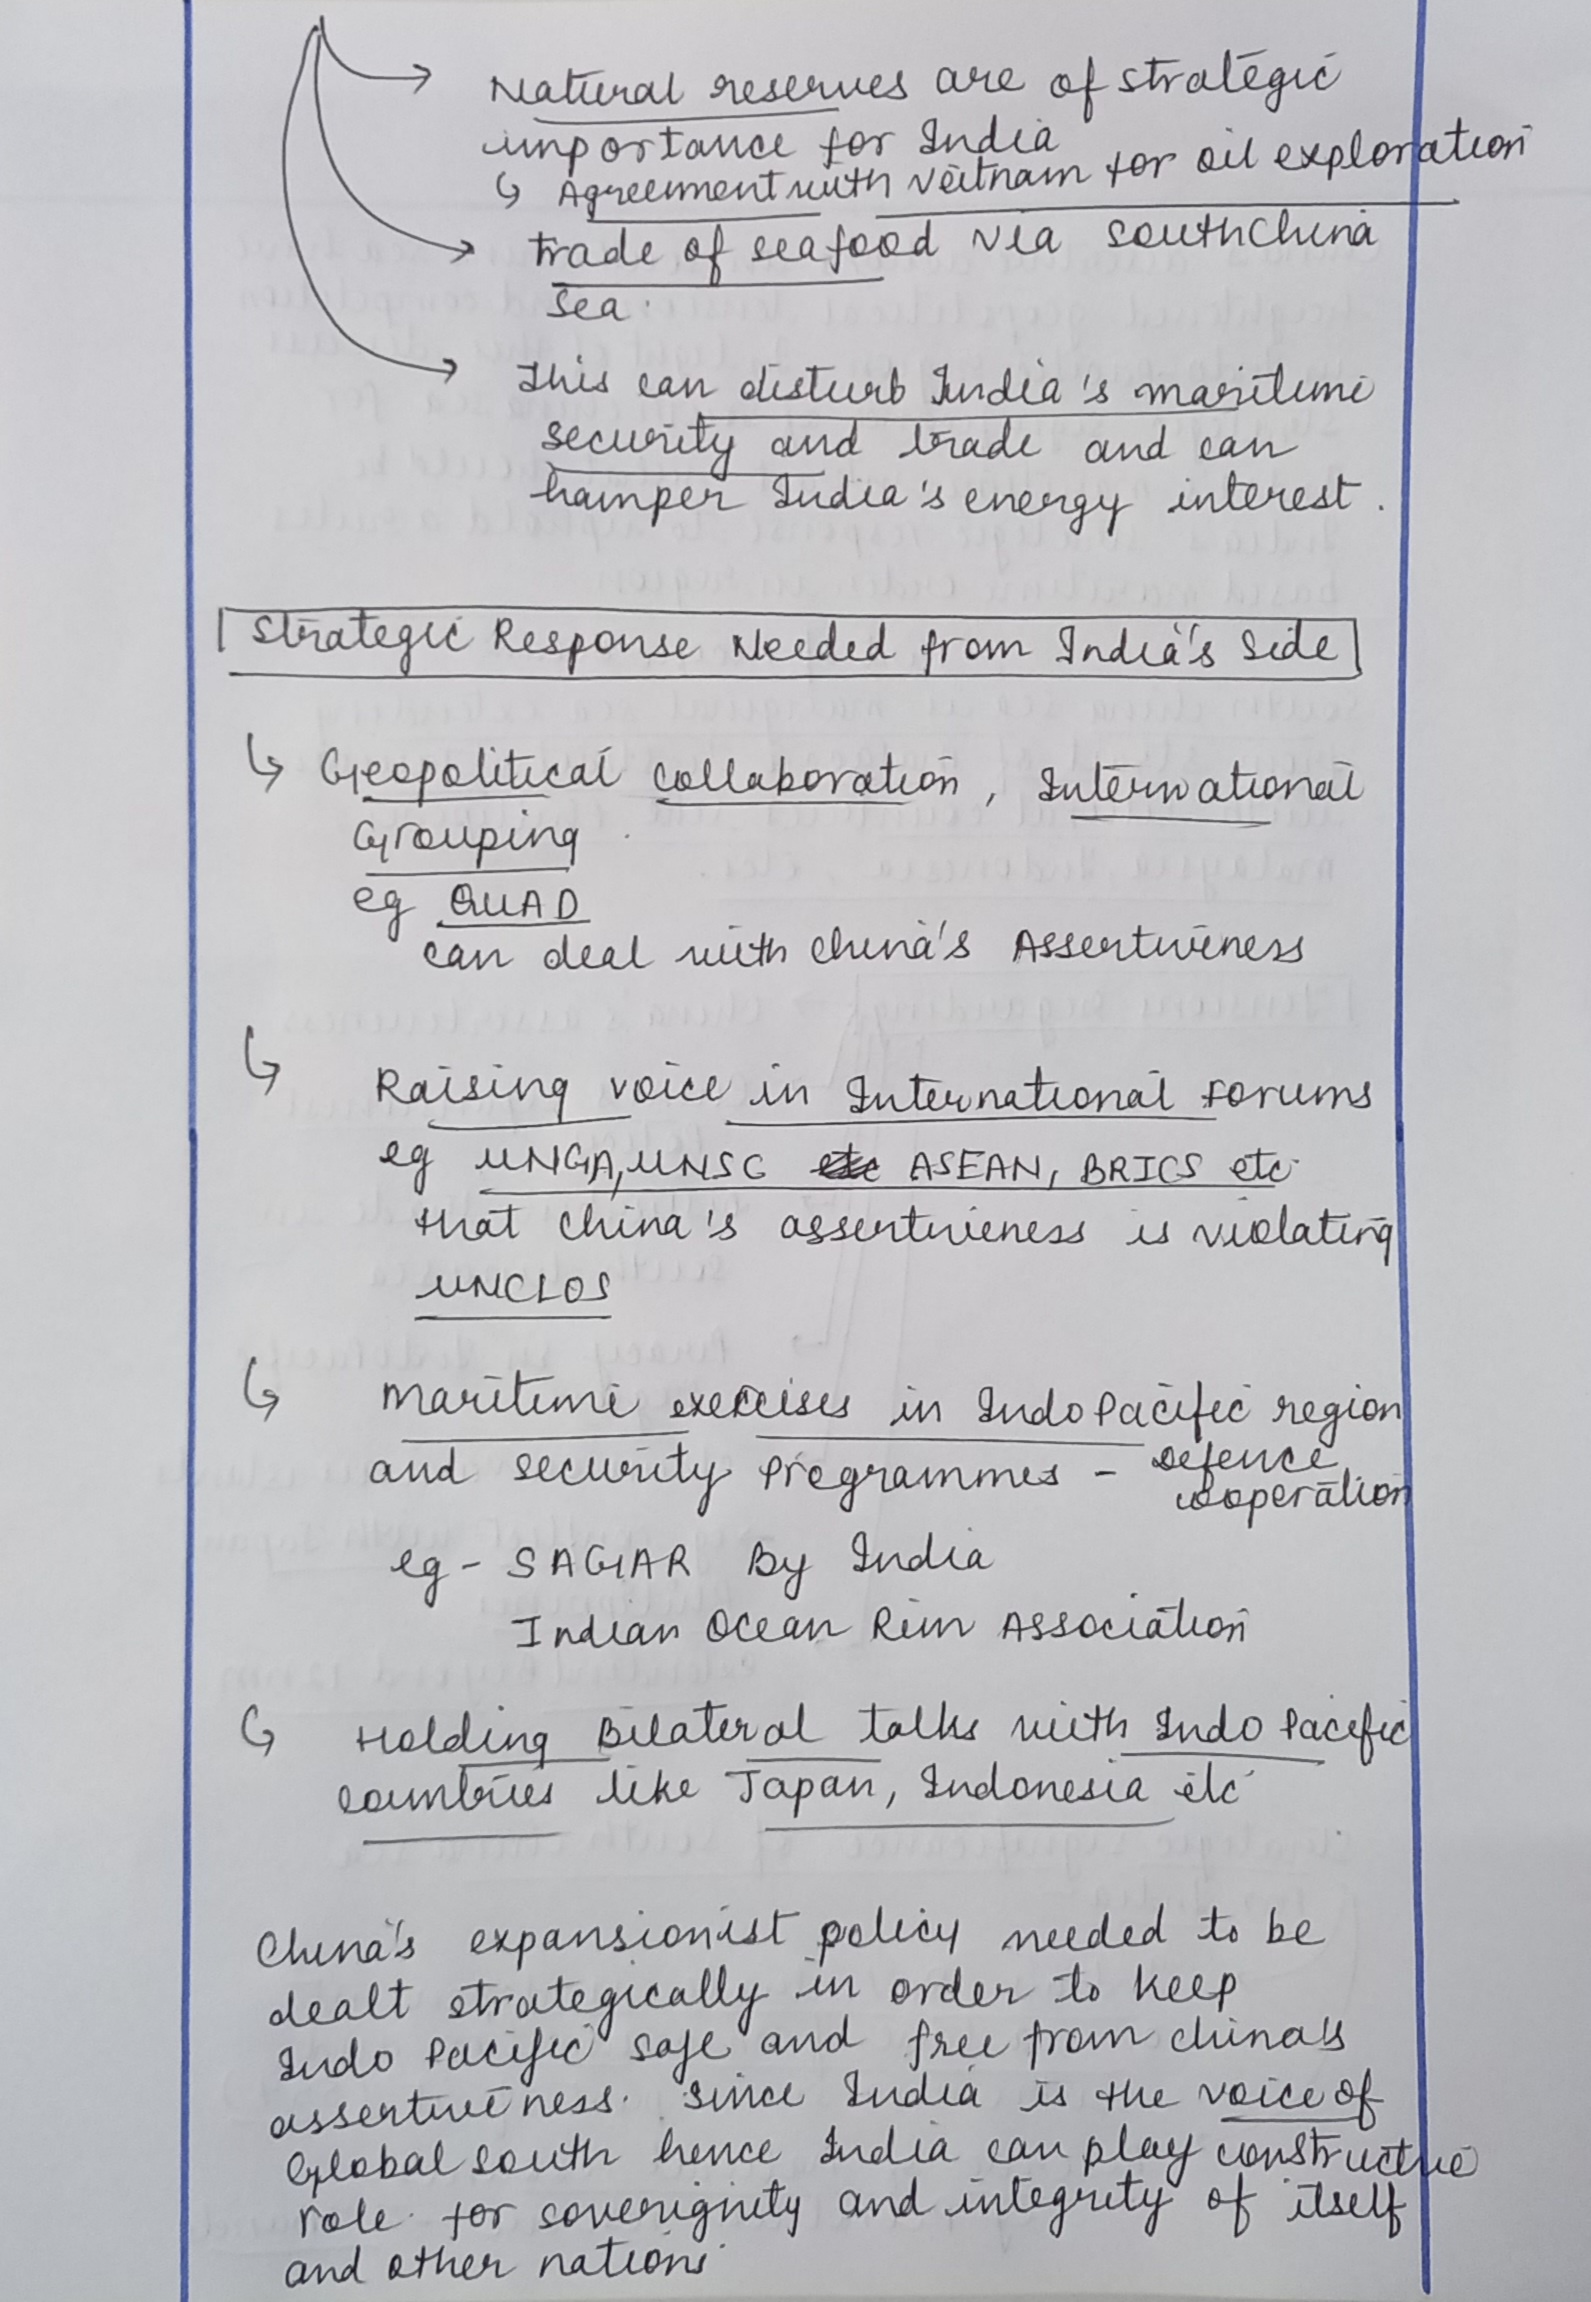 Natural reserves are of strategic
importance for India
↳ Agreement with Veitnam for oil exploration
Trade of seafood via South China
Sea.
This can disturb India's maritime
security and trade and can
hamper India's energy interest.
Strategic Response Needed from India's Side
↳ Geopolitical collaboration, International
Grouping
eg QUAD
can deal with China's Assertiveness
↳ Raising voice in International Forums
eg UNGA, UNSC etc ASEAN, BRICS etc
that China's assertiveness is violating
UNCLOS
↳ Maritime exercises in Indo Pacific region
and security Programmes - Defence
cooperation
eg - SAGAR By India
Indian Ocean Rim Association
↳ Holding Bilateral talks with Indo Pacific
countries like Japan, Indonesia etc
China's expansionist policy needed to be
dealt strategically in order to keep
Indo Pacific safe and free from China's
assertiveness. Since India is the voice of
Global South hence India can play constructive
role for soverignity and integrity of itself
and other nations